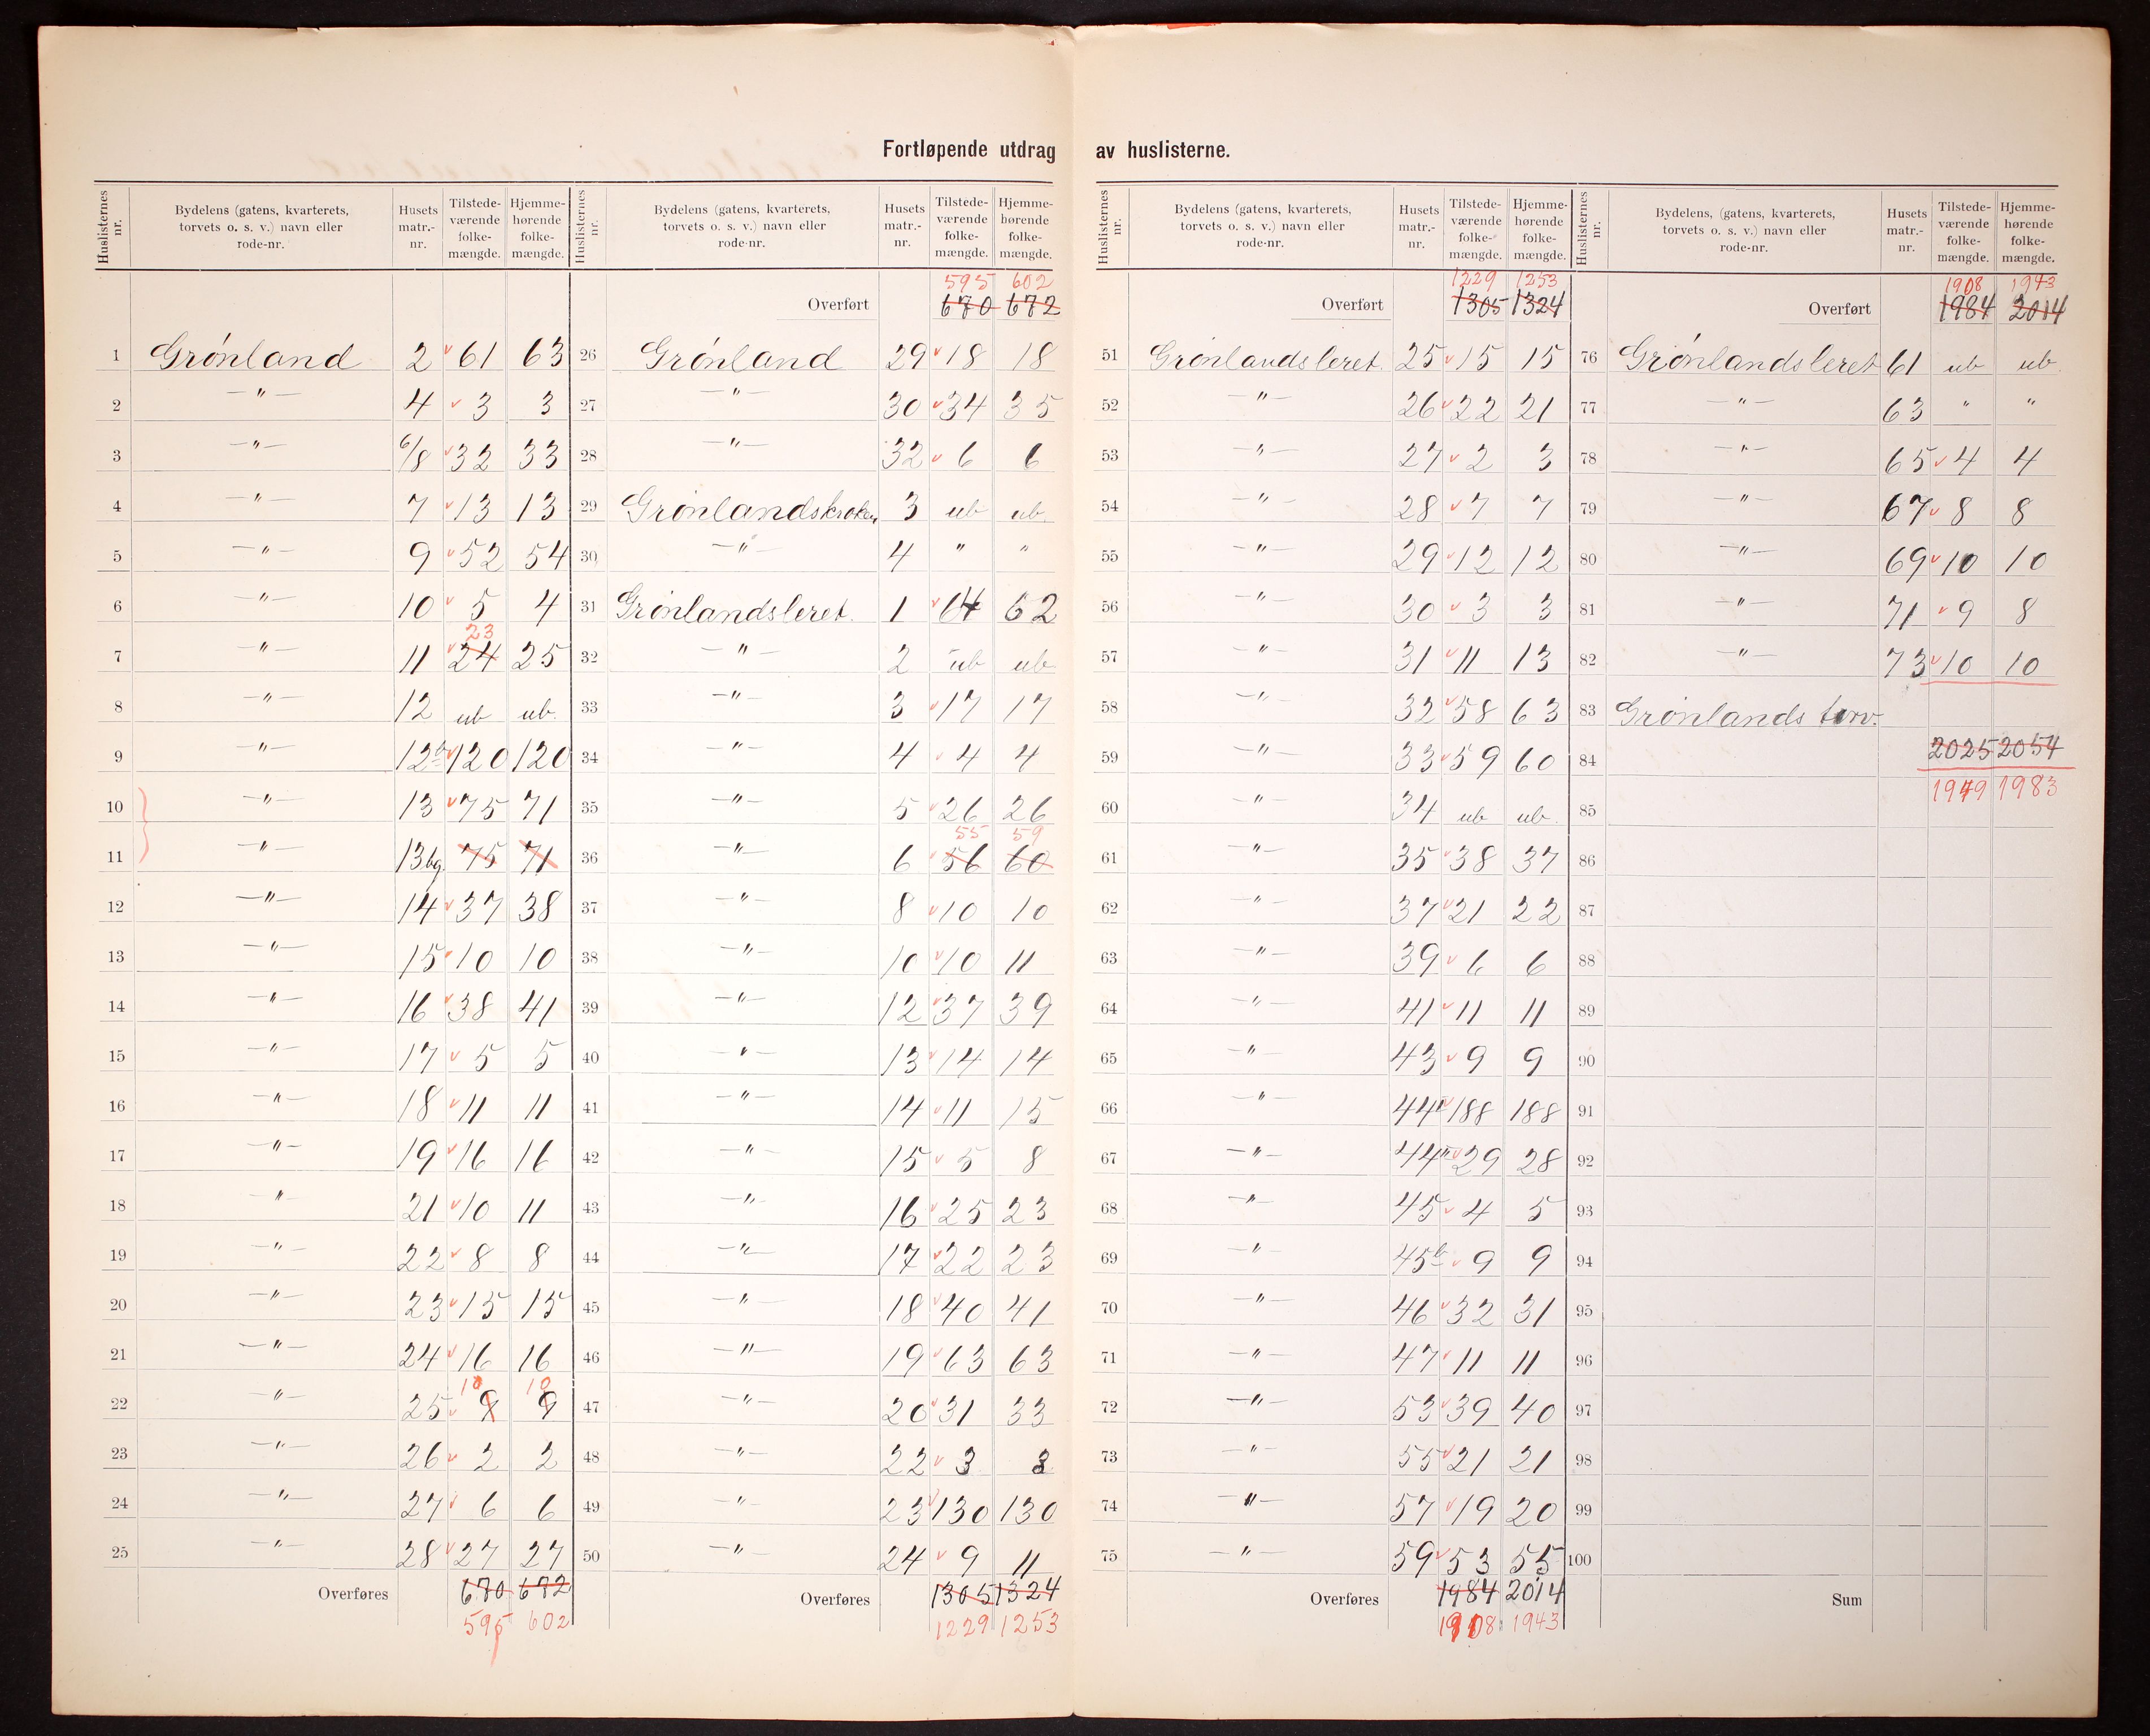 Fortløpende utdrag av huslisterne.
Huslisternes nr. | Bydelens (gatens, kvarterets, torvets o. s. v.) navn eller rode-nr. | Husets matr.-nr. | Tilstede-værende folke-mængde. | Hjemme-hørende folke-mængde.
1 Grönland 2 61 63
2 —"— 4 3 3
3 —"— 6/8 32 33
4 —"— 7 13 13
5 —"— 9 52 54
6 —"— 10 5 4
23
7 —"— 11 24 25
8 —"— 12 ub ub.
9 —"— 12b 120 120
10 —"— 13 75 71
11 —"— 13bg. 75 71
12 —"— 14 37 38
13 —"— 15 10 10
14 —"— 16 38 41
15 —"— 17 5 5
16 —"— 18 11 11
17 —"— 19 16 16
18 —"— 21 10 11
19 —"— 22 8 8
20 —"— 23 15 15
21 —"— 24 16 16
10 10
22 —"— 25 9 9
23 —"— 26 2 2
24 —"— 27 6 6
25 —"— 28 27 27
Overføres 670 672
595 602
Huslisternes nr. | Bydelens (gatens, kvarterets, torvets o. s. v.) navn eller rode-nr. | Husets matr.-nr. | Tilstede-værende folke-mængde. | Hjemme-hørende folke-mængde.
595 602
Overført 670 672
26 Grönland 29 18 18
27 —"— 30 34 35
28 —"— 32 6 6
29 Grönlandskroken 3 ub ub.
30 —"— 4 " "
31 Grönlandsleret. 1 64 62
32 —"— 2 ub ub
33 —"— 3 17 17
34 —"— 4 4 4
35 —"— 5 26 26
55 59
36 —"— 6 56 60
37 —"— 8 10 10
38 —"— 10 10 11
39 —"— 12 37 39
40 —"— 13 14 14
41 —"— 14 11 15
42 —"— 15 5 8
43 —"— 16 25 23
44 —"— 17 22 23
45 —"— 18 40 41
46 —"— 19 63 63
47 —"— 20 31 33
48 —"— 22 3 3
49 —"— 23 130 130
50 —"— 24 9 11
Overføres 1305 1324
1229 1253
Huslisternes nr. | Bydelens (gatens, kvarterets, torvets o. s. v.) navn eller rode-nr. | Husets matr.-nr. | Tilstede-værende folke-mængde. | Hjemme-hørende folke-mængde.
1229 1253
Overført 1305 1324
51 Grönlandsleret. 25 15 15
52 —"— 26 22 21
53 —"— 27 2 3
54 —"— 28 7 7
55 —"— 29 12 12
56 —"— 30 3 3
57 —"— 31 11 13
58 —"— 32 58 63
59 —"— 33 59 60
60 —"— 34 ub ub.
61 —"— 35 38 37
62 —"— 37 21 22
63 —"— 39 6 6
64 —"— 41 11 11
65 —"— 43 9 9
66 —"— 44I 188 188
67 —"— 44II 29 28
68 —"— 45 4 5
69 —"— 45b 9 9
70 —"— 46 32 31
71 —"— 47 11 11
72 —"— 53 39 40
73 —"— 55 21 21
74 —"— 57 19 20
75 —"— 59 53 55
Overføres 1984 2014
1908 1943
Huslisternes nr. | Bydelens, (gatens, kvarterets, torvets o. s. v.) navn eller rode-nr. | Husets matr.-nr. | Tilstede-værende folke-mængde. | Hjemme-hørende folke-mængde.
1908 1943
Overført 1984 2014
76 Grönlandsleret 61 ub ub.
77 —"— 63 " "
78 —"— 65 4 4
79 —"— 67 8 8
80 —"— 69 10 10
81 —"— 71 9 8
82 —"— 73 10 10
83 Grönlands torv.
84 2025 2054
85 1949 1983
86
87
88
89
90
91
92
93
94
95
96
97
98
99
100
Sum